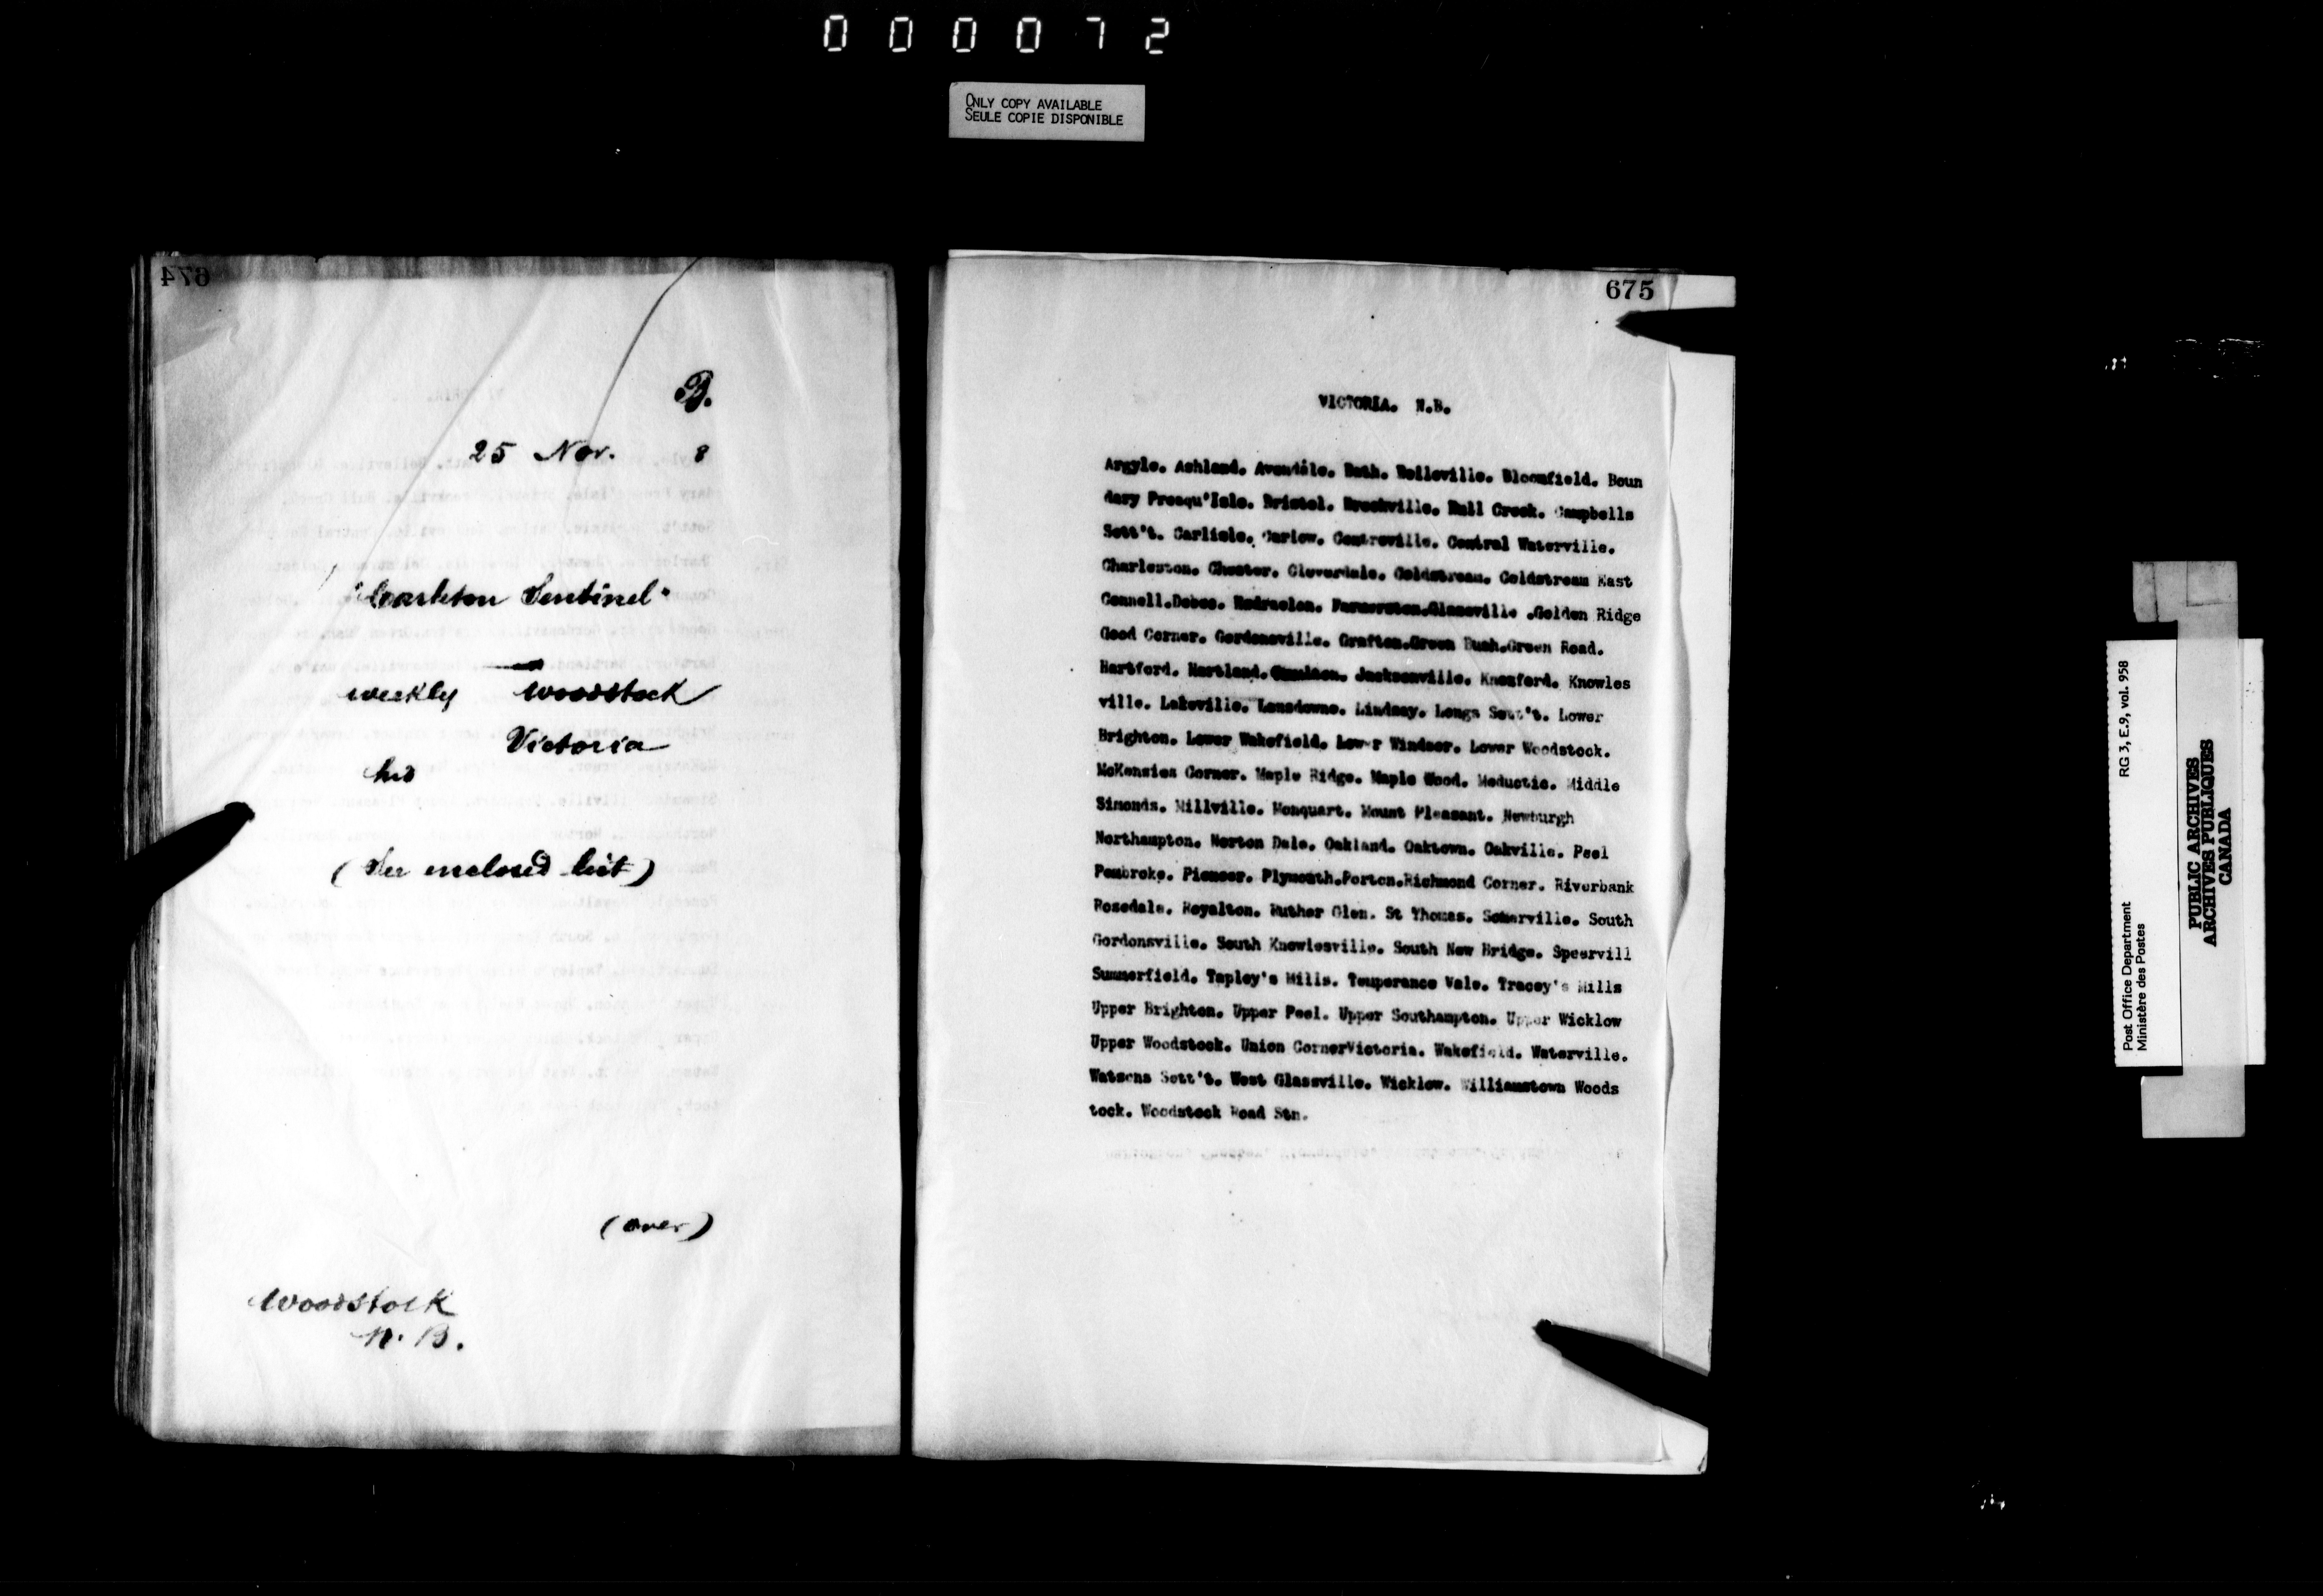 000072
ONLY COPY AVAILABLE
SEULE COPIE DISPONIBLE
674
B.
25 Nov. 8
"Carleton Sentinel"
weekly Woodstock
Victoria
(See enclosed list)
(over)
Woodstock
N. B.
675
VICTORIA. N.B.
Argyle. Ashland. Avondale. Bath. Belleville. Bloomfield. Boun
dary Presqu'Isle. Bristol. Brookville. Bull Creek. Campbells
Sett't. Carlisle. Carlow. Centreville. Central Waterville.
Charleston. Chester. Cloverdale. Coldstream. Coldstream East
Connell.Debec. Farmerston.Glassville .Golden Ridge
Good Corner. Gordonsville. Grafton.Green Bush.Green Road.
Hartford. Hartland. Jacksonville. Knoxford. Knowles
ville. Lakeville. Lansdowne. Lindsay. Longs Sett't. Lower
Brighton. Lower Wakefield. Lower Windsor. Lower Woodstock.
McKenzies Corner. Maple Ridge. Maple Wood. Meductic. Middle
Simonds. Millville. Monquart. Mount Pleasant. Newburgh
Northampton. Norton Dale. Oakland. Oaktown. Oakville. Peel
Pembroke. Pioneer. Plymouth.Porten.Richmond Corner. Riverbank
Rosedale. Royalton. Ruther Glen. St Thomas. Somerville. South
Gordonsville. South Knowlesville. South New Bridge. Speervill
Summerfield. Tapley's Mills. Temperance Vale. Tracey's Mills
Upper Brighton. Upper Peel. Upper Southampton. Upper Wicklow
Upper Woodstock. Union CornerVictoria. Wakefield. Waterville.
Watsons Sett't. West Glassville. Wicklow. Williamstown Woods
tock. Woodstock Road Stn.
Post Office Department RG 3, E.9, vol. 958
Ministère des Postes
PUBLIC ARCHIVES
ARCHIVES PUBLIQUES
CANADA